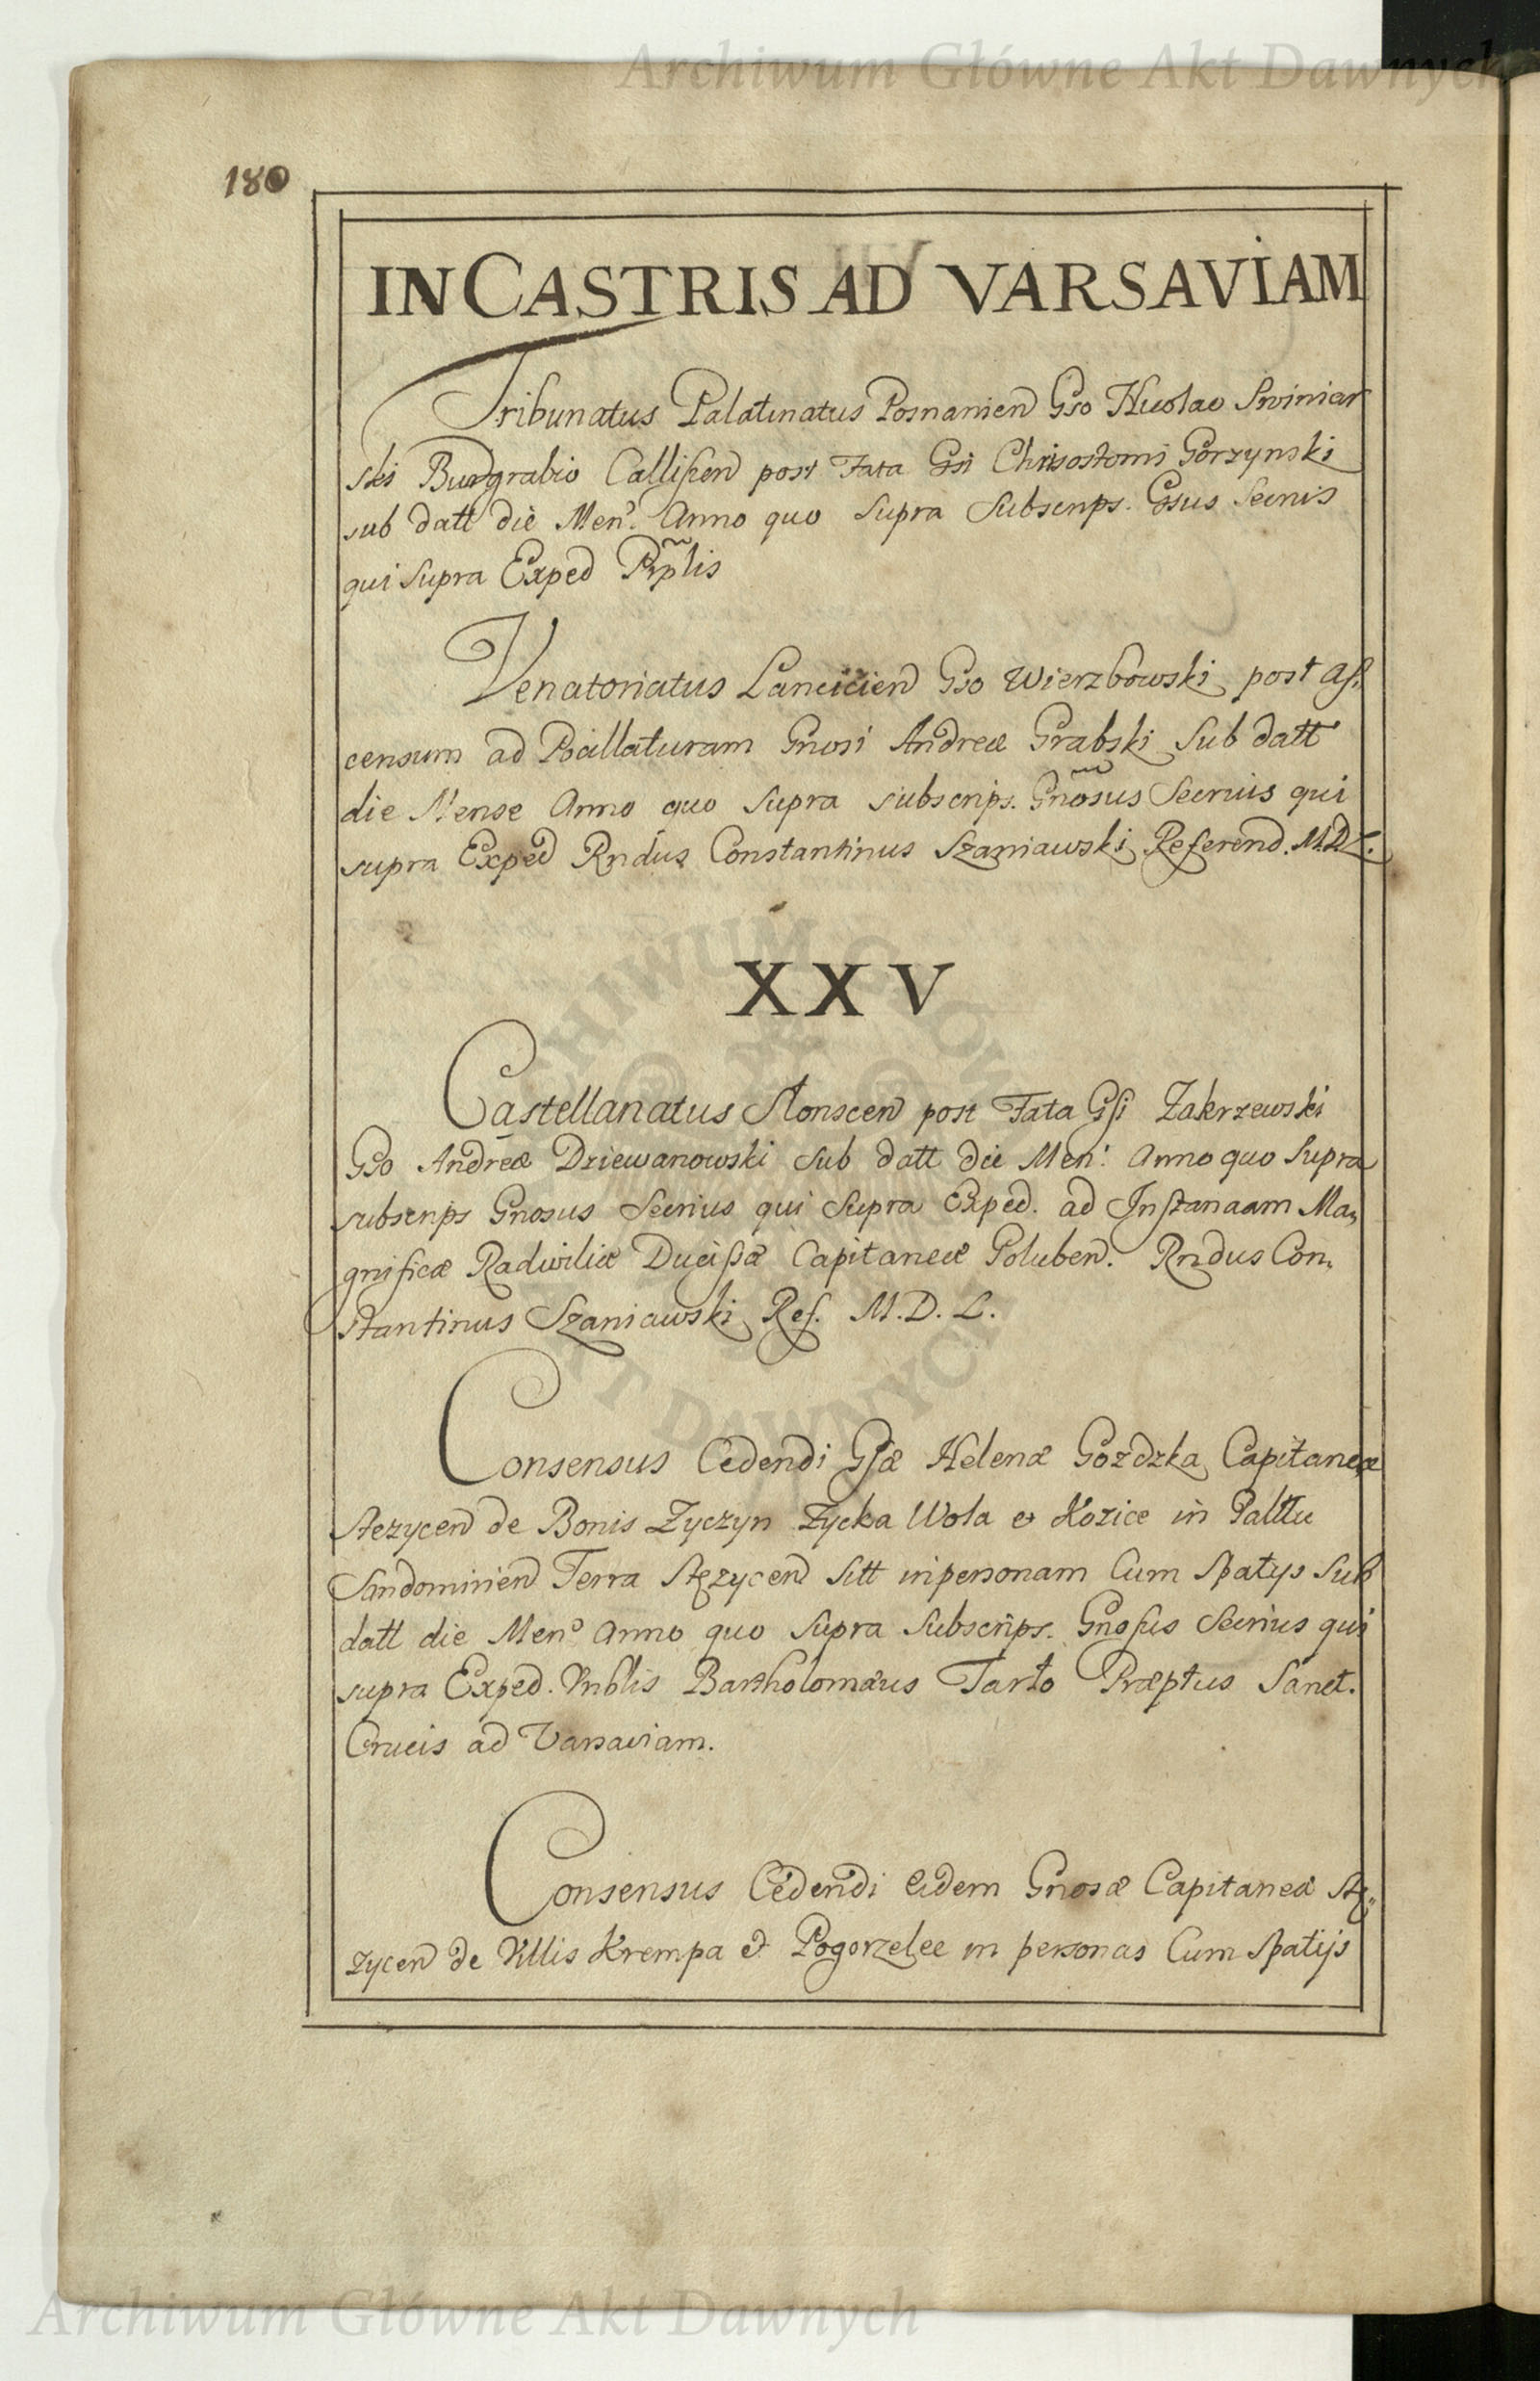 Archiwum Główne Akt Dawnych
180
IN CASTRIS AD VARSAVIAM
Tribunatus Palatinatus Posnanien Gso Nicolao Swiniar
ski Burgrabio Callisien post Fata Gsi Chrisostomi Gorzynski
sub datt die Men. Anno quo Supra Subscrips. Gsus Secrius
qui Supra Exped
Venatoriatus Lancicien Gso Wierzbowski post As,
censum ad Pocillaturam Gnosi Andreæ Grabski Sub datt
die Mense Anno quo Supra subscrips. Gnosus Secrius qui
supra Exped Rndus Constantinus Szaniawski Referend. M.D.L.
XXV
Castellanatus Slonscen post Fata Gsi Zakrzewski
Gso Andreæ Dziewanowski sub datt die Men. Anno quo Supra
subscrips Gnosus Secrius qui Supra Exped. ad Instanciam Ma,
gnificæ Radwiliæ Ducissæ Capitaneæ Poluben. Rndus Con,
stantinus Szaniawski Ref. M. D. L.
Consensus Cedendi Gsæ Helenæ Gozdzka Capitaneæ
Stezycen de Bonis Zyczyn Zycka Wola et Kozice in Palttu
Sandomirien Terra Stęzycen sitt in personam Cum Spatys Sub
datt die Men Anno quo Supra Subscrips. Gnosus Secrius qui
supra Exped. Bartholomæus Tarło Præptus Sanct.
Crucis ad Varsaviam.
Consensus Cedendi Eidem Gnosæ Capitaneæ Stę,,
zycen de Villis Krempa et Pogorzelec in personas Cum Spatijs
Archiwum Główne Akt Dawnych